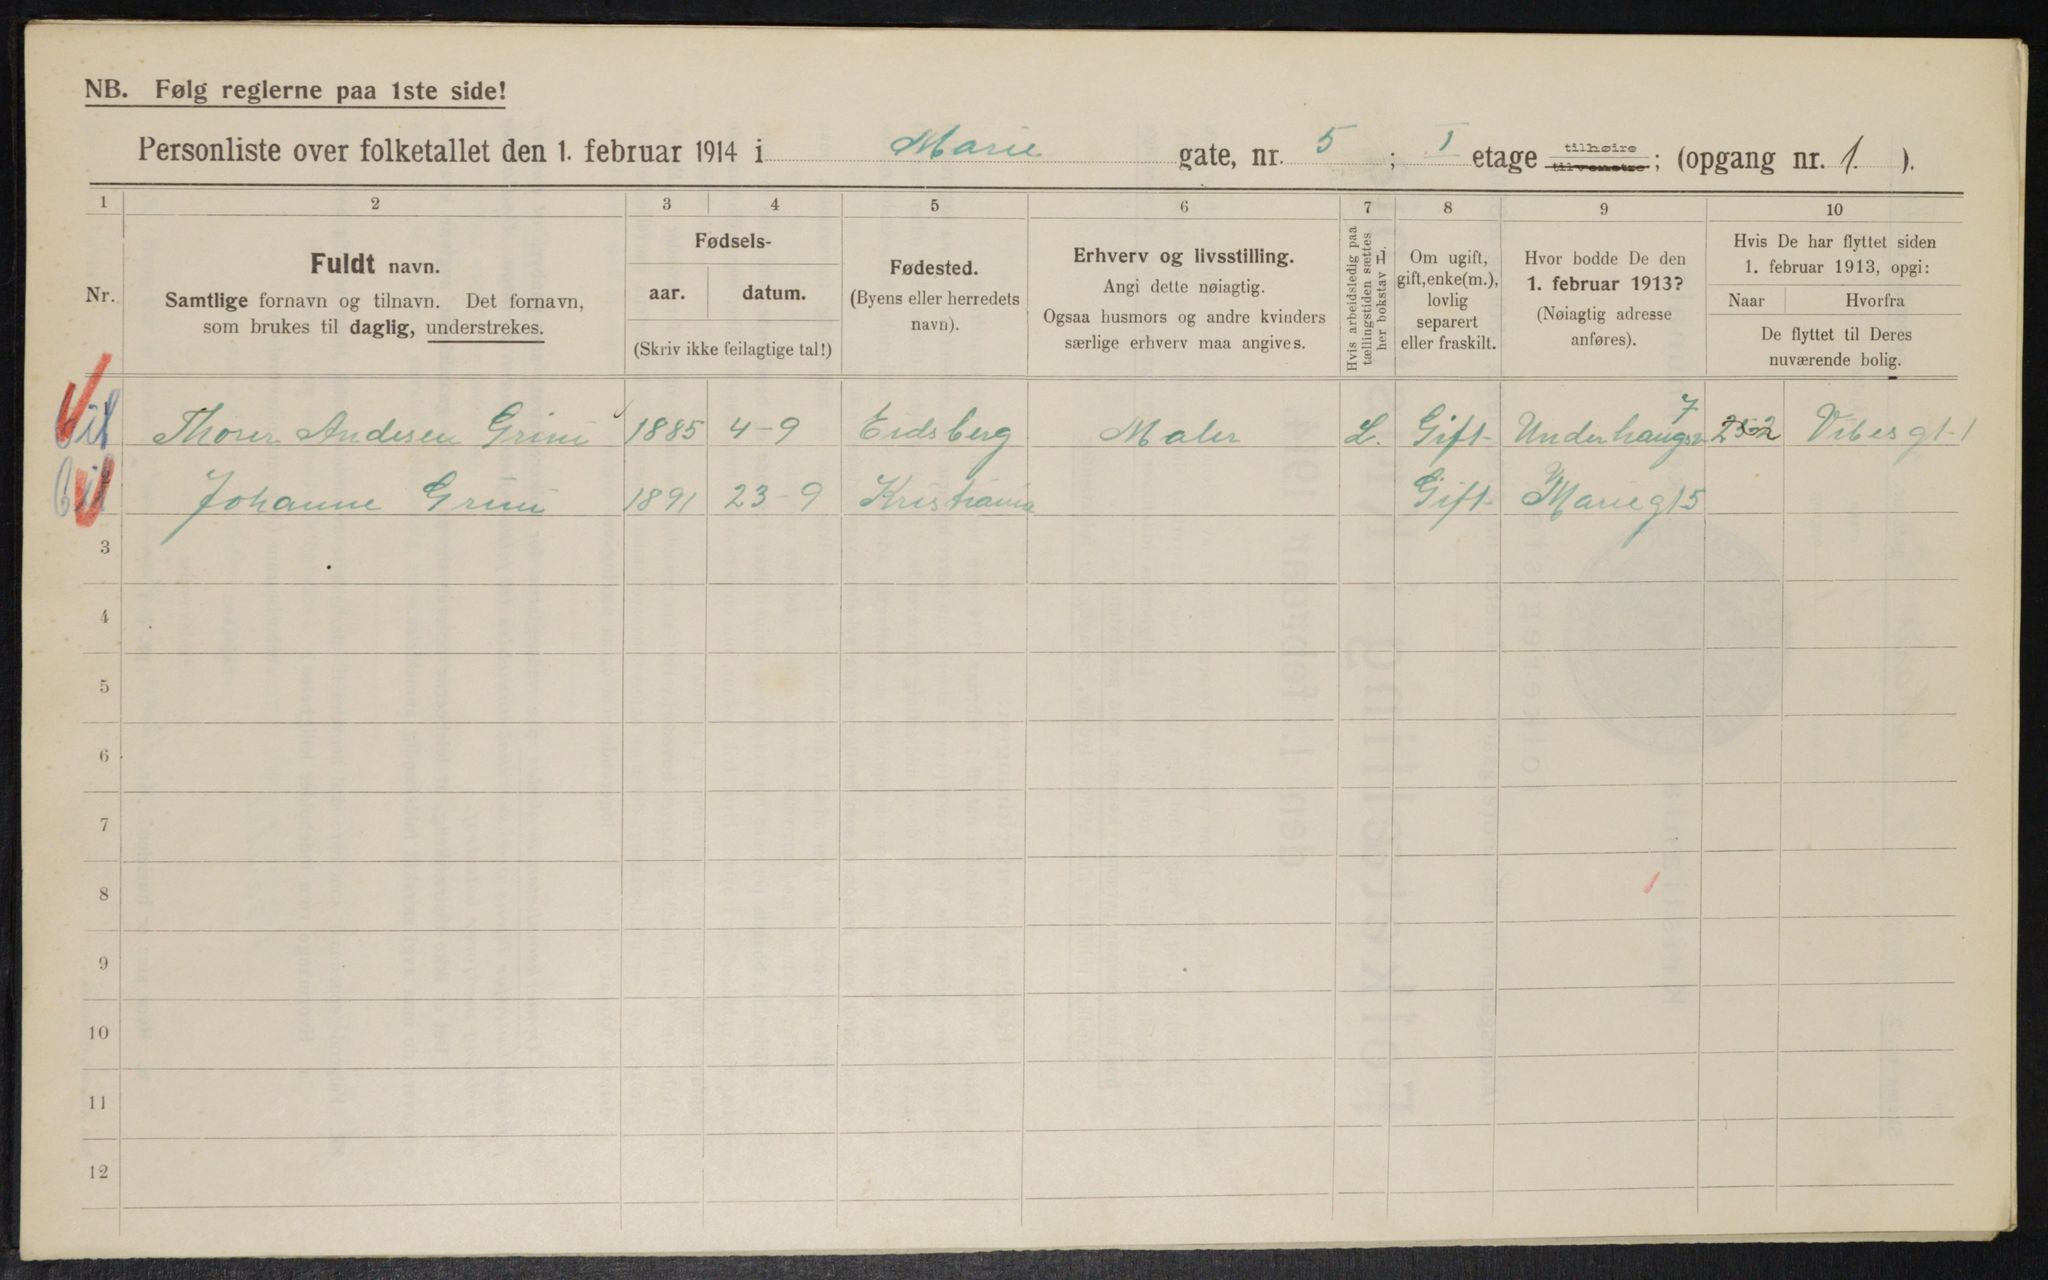 NB. Følg reglerne paa 1ste side!
Personliste over folketallet den 1. februar 1914 i Marie gate, nr. 5 ; I etage tilhøire tilvenstre; (opgang nr. 1. ).
1 2 3 4 5 6 7 8 9 10
Nr.
Fuldt navn.
Samtlige fornavn og tilnavn. Det fornavn,
som brukes til daglig, understrekes.
Fødsels-
aar. datum.
(Skriv ikke feilagtige tal!)
Fødested.
(Byens eller herredets
navn).
Erhverv og livsstilling.
Angi dette nøiagtig.
Ogsaa husmors og andre kvinders
særlige erhverv maa angives.
Hvis arbeidsledig paa
tællingstiden sættes
her bokstav L.
Om ugift,
gift, enke(m.),
lovlig
separert
eller fraskilt.
Hvor bodde De den
1. februar 1913?
(Nøiagtig adresse
anføres).
Hvis De har flyttet siden
1. februar 1913, opgi:
Naar Hvorfra
De flyttet til Deres
nuværende bolig.
Thorer Andesen Grini 1885 4-9 Eidsberg Maler L. Gift Underhaugsv 7 Vibesgt. 1
Johanne Grini 1891 23-9 Kristiania Gift Mariegt 5
3
4
5
6
7
8
9
10
11
12